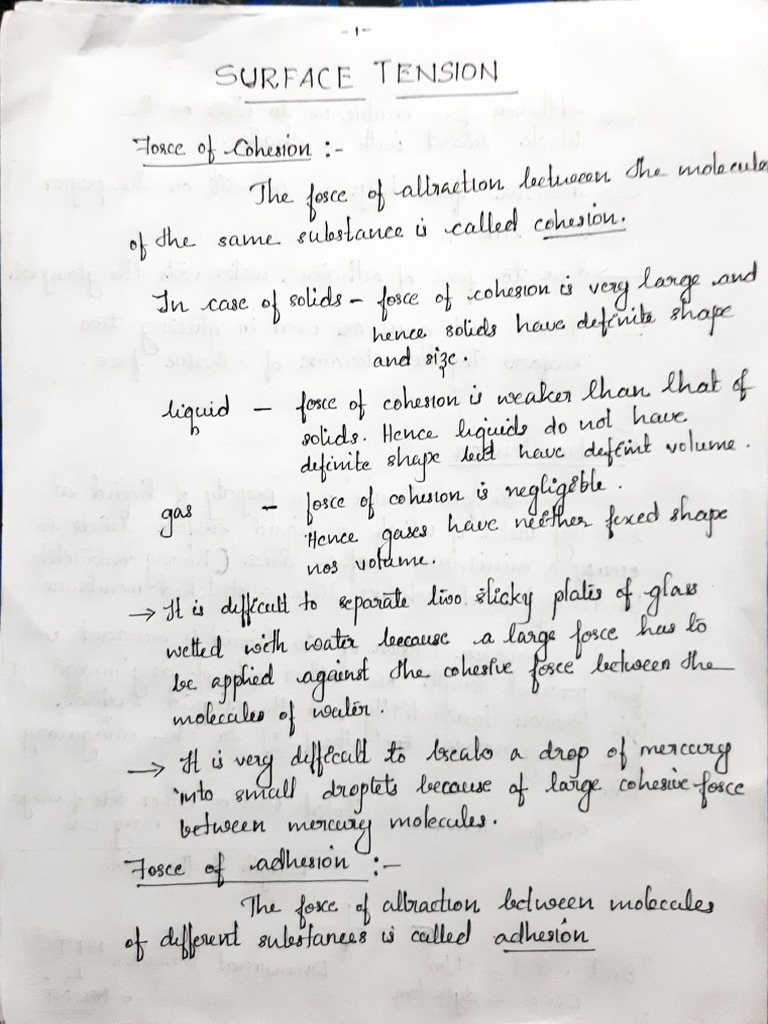 -1-
SURFACE TENSION
Force of Cohesion :-
The force of attraction between the molecule
of the same substance is called cohesion.
In case of solids - force of cohesion is very large and
hence solids have definite shape
and size.
liquid - force of cohesion is weaker than that of
solids. Hence liquids do not have
definite shape but have defint volume.
gas - force of cohesion is negligible.
Hence gases have neither fixed shape
nor volume.
→ It is difficult to separate two sticky plates of glass
wetted with water because a large force has to
be applied against the cohesive force between the
molecules of water.
→ It is very difficult to break a drop of mercury
into small droplets because of large cohesive force
between mercury molecules.
Force of adhesion :-
The force of attraction between molecules
of different substances is called adhesion